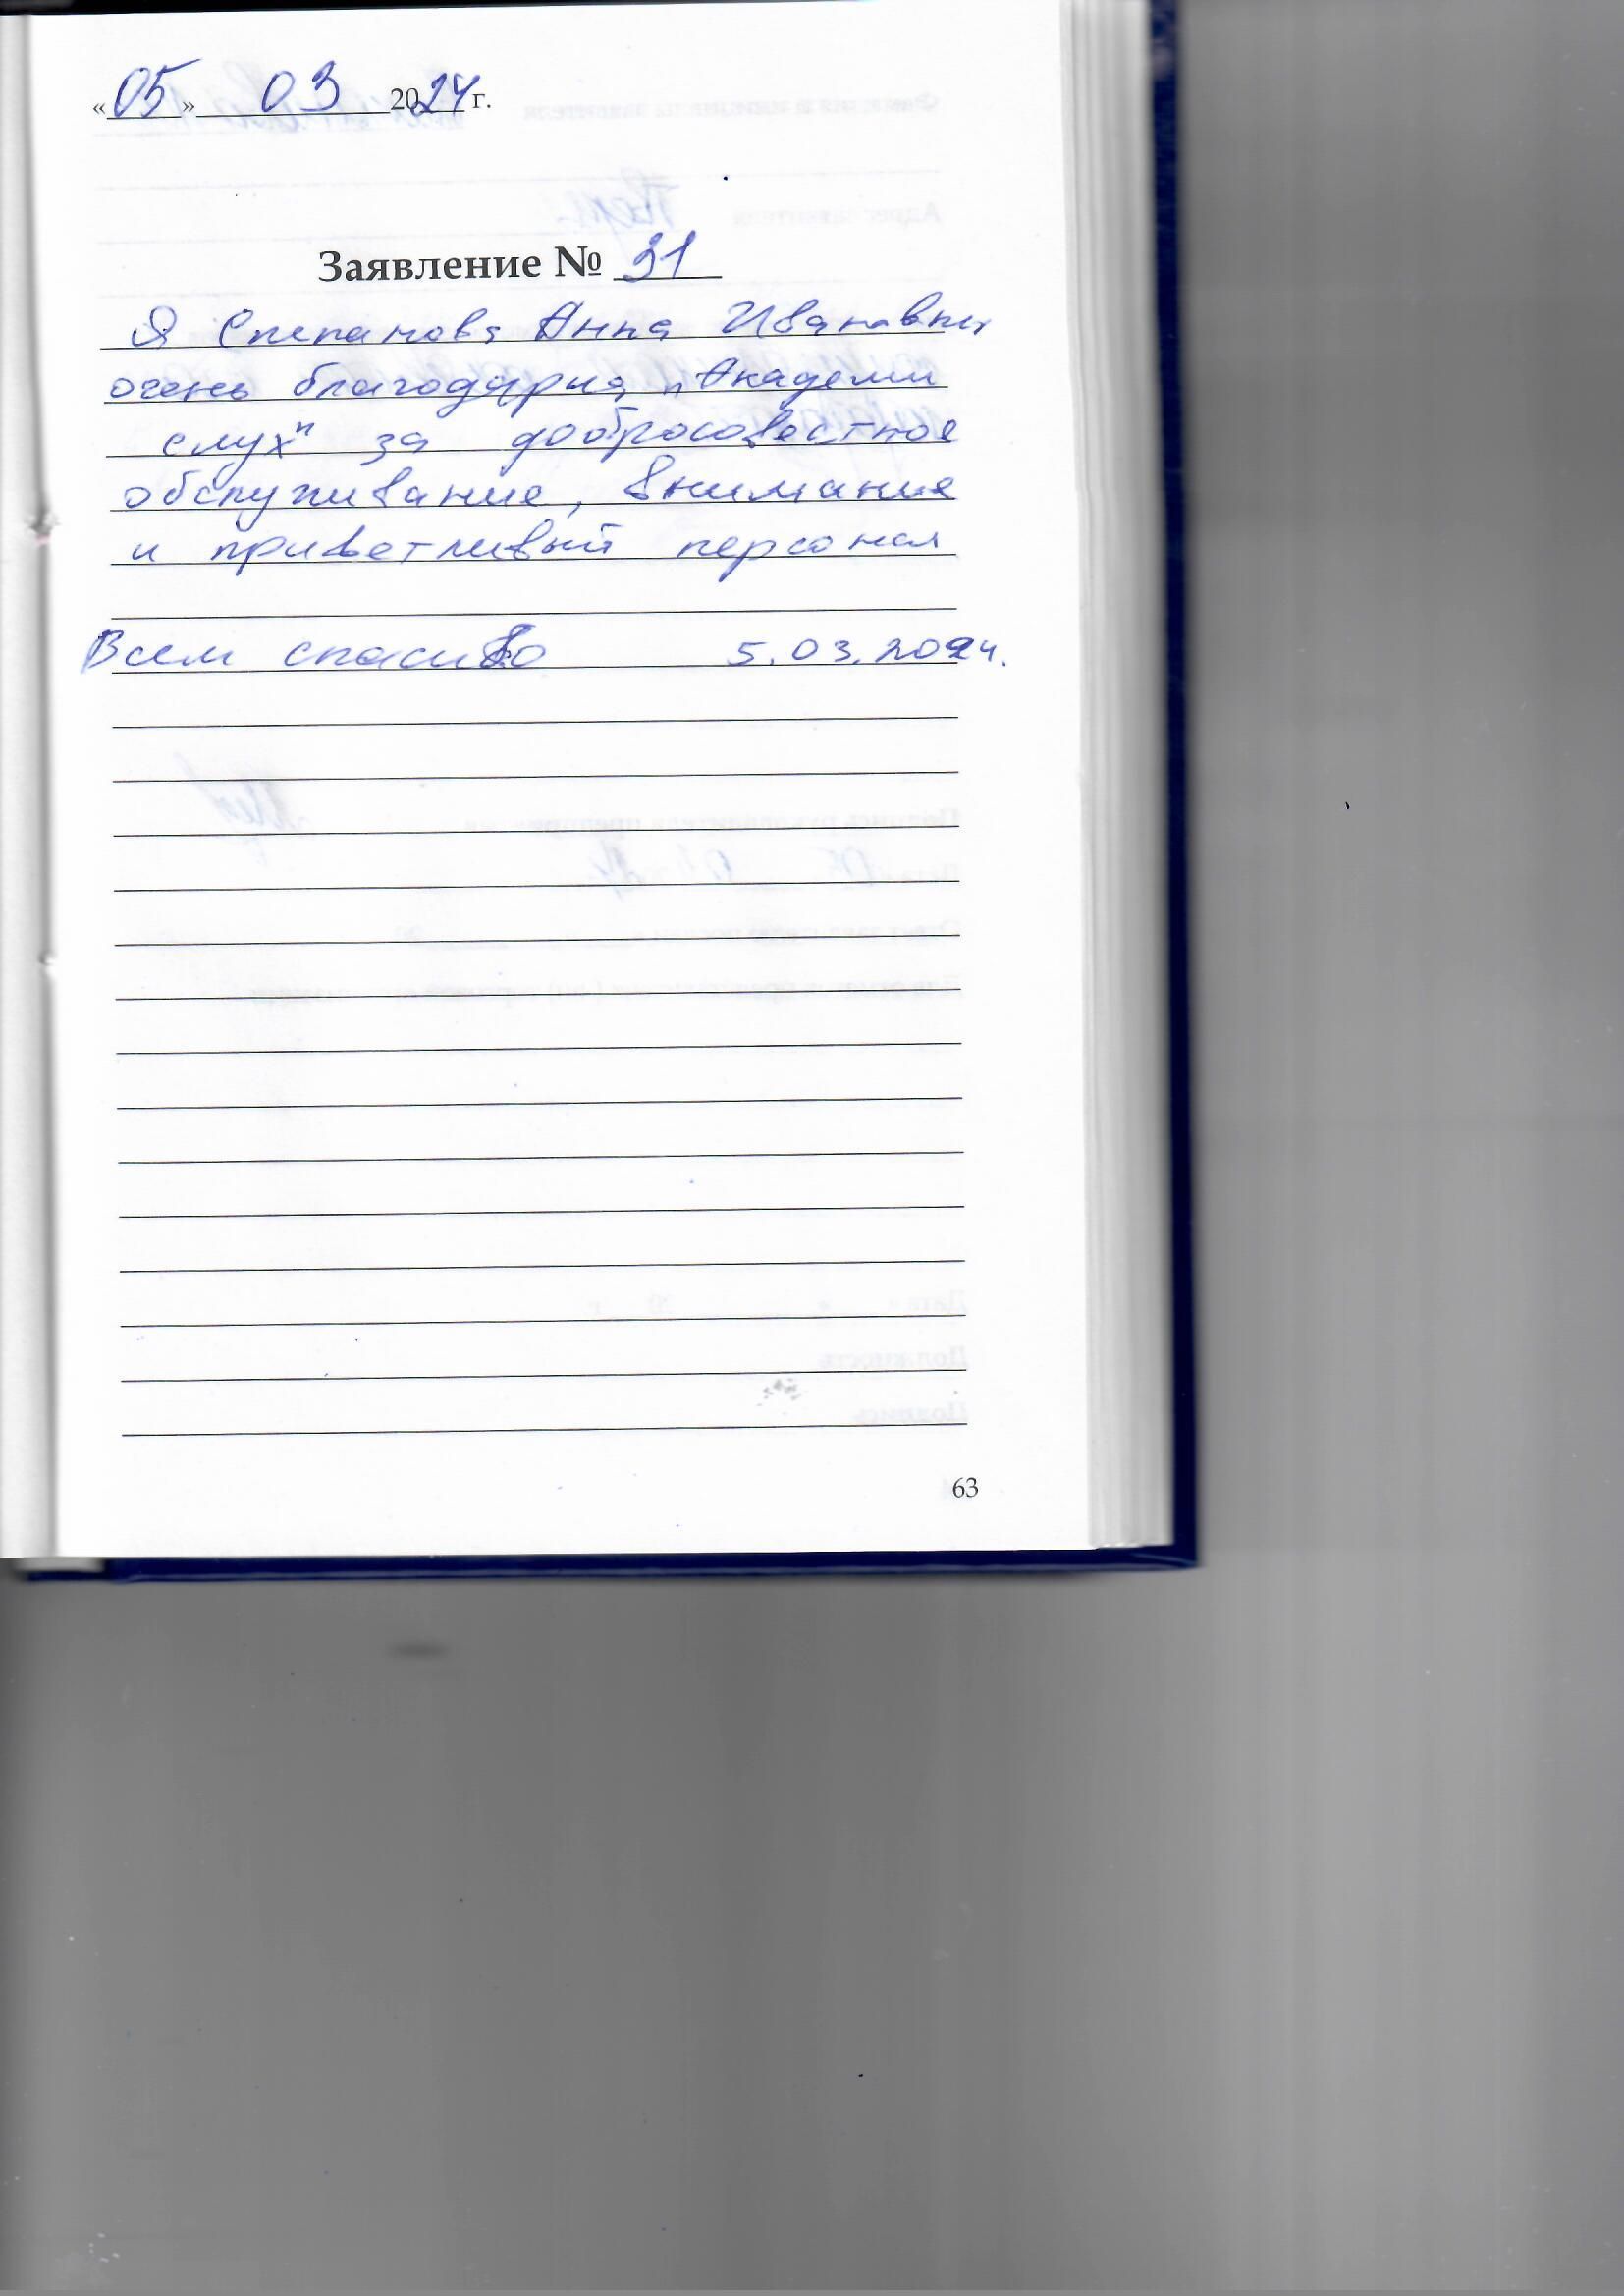 «05» 03 2024 г.
Заявление № 31
Я Степанова Анна Ивановна
очень благодарна „Академии
слух" за добросовестное
обслуживание, внимание
и приветливый персонал
Всем спасибо 5.03.2024.
63